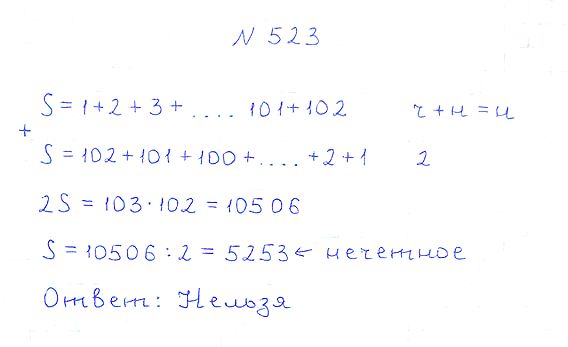 N 523
S = 1 + 2 + 3 + .... 101 + 102 ч + н = н
+
S = 102 + 101 + 100 + .... + 2 + 1 2
2S = 103 · 102 = 10506
S = 10506 : 2 = 5253 ← нечетное
Ответ: Нельзя